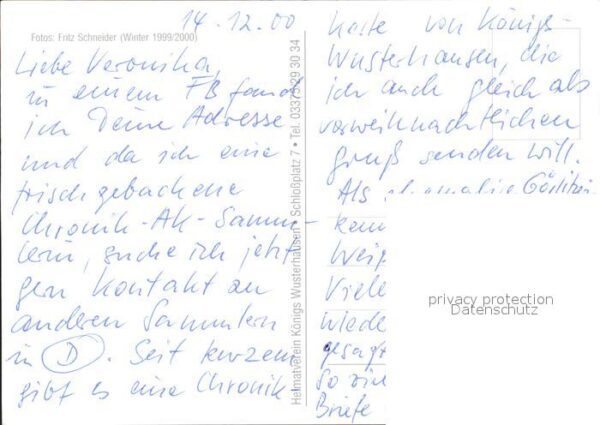 14.12.00
Fotos: Fritz Schneider (Winter 1999/2000)
Liebe Veronika,
in einem FB fand
ich Deine Adresse
und da ich eine
frischgebackene
Chronik-AK-Samm-
lerin, suche ich jetzt
gern Kontakt an
anderen Sammlern
in D. Seit kurzem
gibt es eine Chronik
Heimatverein Königs Wusterhausen • Schloßplatz 7 • Tel. 03375/29 30 34
karte von Königs-
Wusterhausen, die
ich auch gleich als
vorweihnachtlichen
Gruß senden will.
Als ehemalige
Viele
wiede
gesagt
so vie
Briefe
privacy protection
Datenschutz